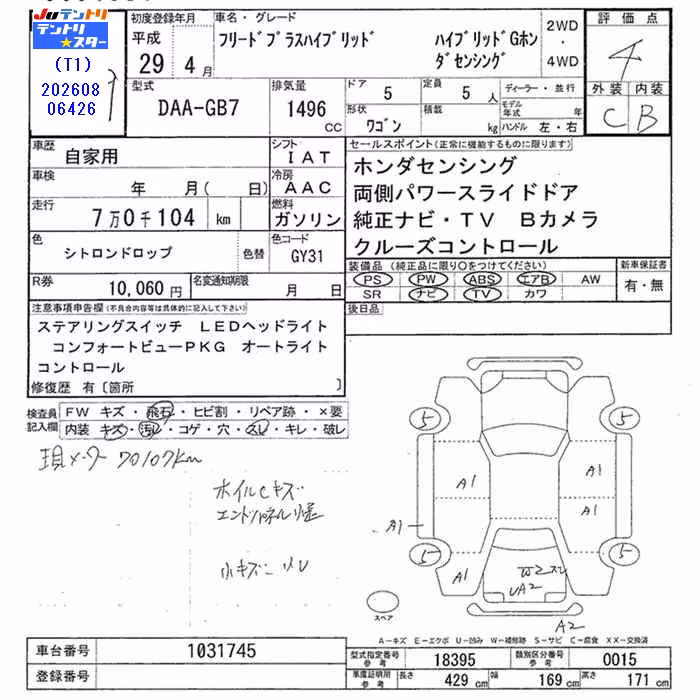 JUテントリ
テントリ
スター
(T1)
202608
06426
初度登録年月
平成
29 4月
車名・グレード
フリードプラスハイブリッド ハイブリッドGホン
ダセンシング
2WD
・
4WD
評価点
4
外装 内装
C B
型式
DAA-GB7
排気量
1496
CC
ドア
5
定員
5人
ディーラー・並行
形状
ワゴン
積載
kg
モデル年式 年式
ハンドル 左・右
車歴
自家用
シフト
IAT
車検
年 月( 日)
冷房
AAC
走行
7万0千104 km
燃料
ガソリン
色
シトロンドロップ
色替
色コード
GY31
R券
10,060円
名変通知期限
月 日
セールスポイント(正常に機能するものに限ります)
ホンダセンシング
両側パワースライドドア
純正ナビ・TV Bカメラ
クルーズコントロール
装備品(純正品に限り○をつけてください)
PS PW ABS エアB AW
SR ナビ TV カワ
新車保証書
有・無
後日品
注意事項申告欄(不具合内容等は具体的に記入して下さい)
ステアリングスイッチ LEDヘッドライト
コンフォートビューPKG オートライト
コントロール
修復歴 有〔箇所 〕
検査員
記入欄
FW キズ・飛石・ヒビ割・リペア跡・×要
内装 キズ・汚れ・コゲ・穴・スレ・キレ・破レ
現メーター 70107km
ホイルCキズ
小キズ
5 5
A1
A1 A1
A1
5 5
A1
W2
UA2
A2
スペア
A-キズ E-エクボ U-凹み W-補修跡 S-サビ C-腐食 XX-交換済
車台番号
1031745
登録番号
型式指定番号
参考
18395
類別区分番号
参考
0015
車庫証明用
参考
長さ
429 cm
幅
169 cm
高さ
171 cm